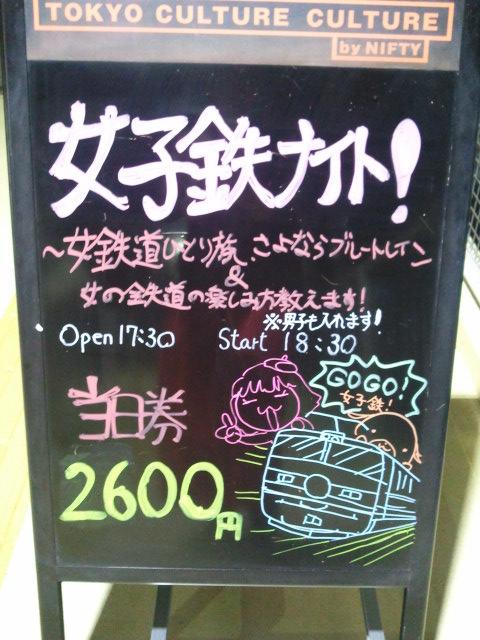 TOKYO CULTURE CULTURE
by NIFTY
女子鉄ナイト!
～女鉄道ひとり旅、さよならブルートレイン
&
女の鉄道の楽しみ方教えます!
※男子も入れます!
Open 17:30 Start 18:30
GOGO!
女子鉄!
当日券
2600円